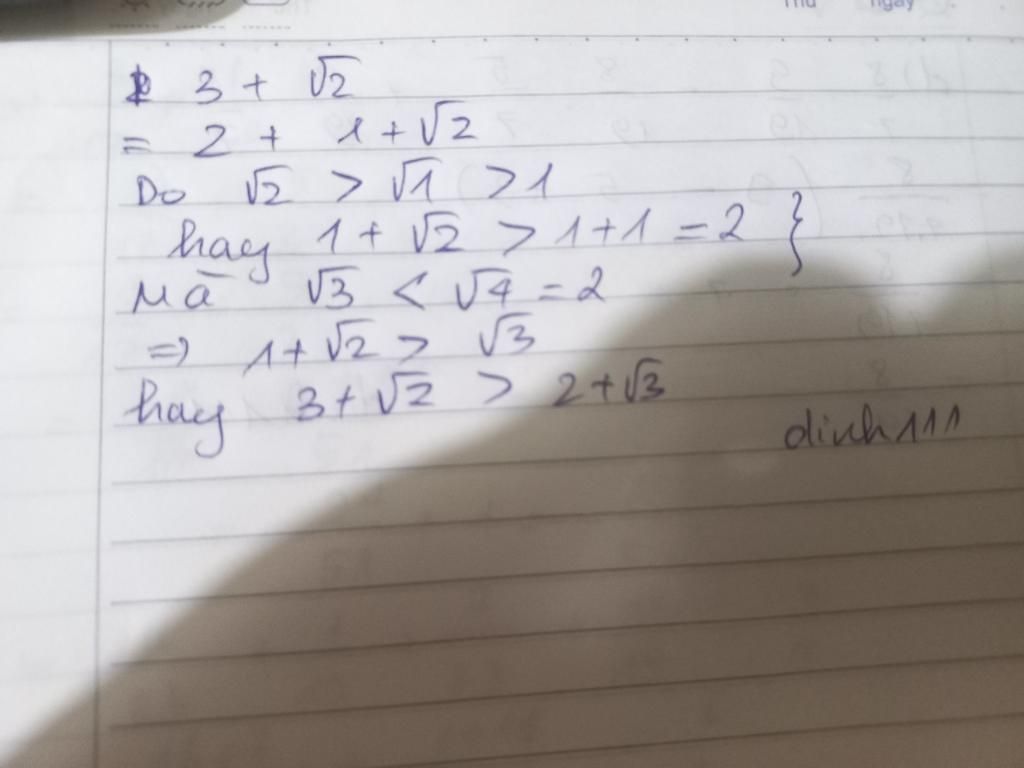 Thứ ngày
3 + √2
= 2 + 1 + √2
Do √2 > √1 > 1
hay 1 + √2 > 1 + 1 = 2 }
Mà √3 < √4 = 2
=> 1 + √2 > √3
hay 3 + √2 > 2 + √3
dinh111